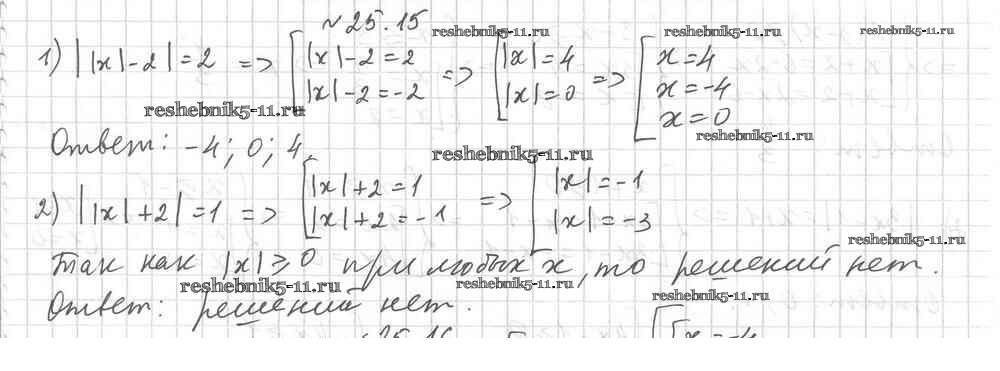 № 25.15
reshebnik5-11.ru reshebnik5-11.ru reshebnik5-11.ru
1) ||x|-2|=2 => [ |x|-2=2 => [ |x|=4 => [ x=4
|x|-2=-2 |x|=0 x=-4
x=0
reshebnik5-11.ru
reshebnik5-11.ru
Ответ: -4; 0; 4.
reshebnik5-11.ru
2) ||x|+2|=1 => [ |x|+2=1 => [ |x|=-1
|x|+2=-1 |x|=-3
reshebnik5-11.ru
Так как |x|≥0 при любых x, то решений нет.
reshebnik5-11.ru reshebnik5-11.ru
reshebnik5-11.ru
Ответ: решений нет.